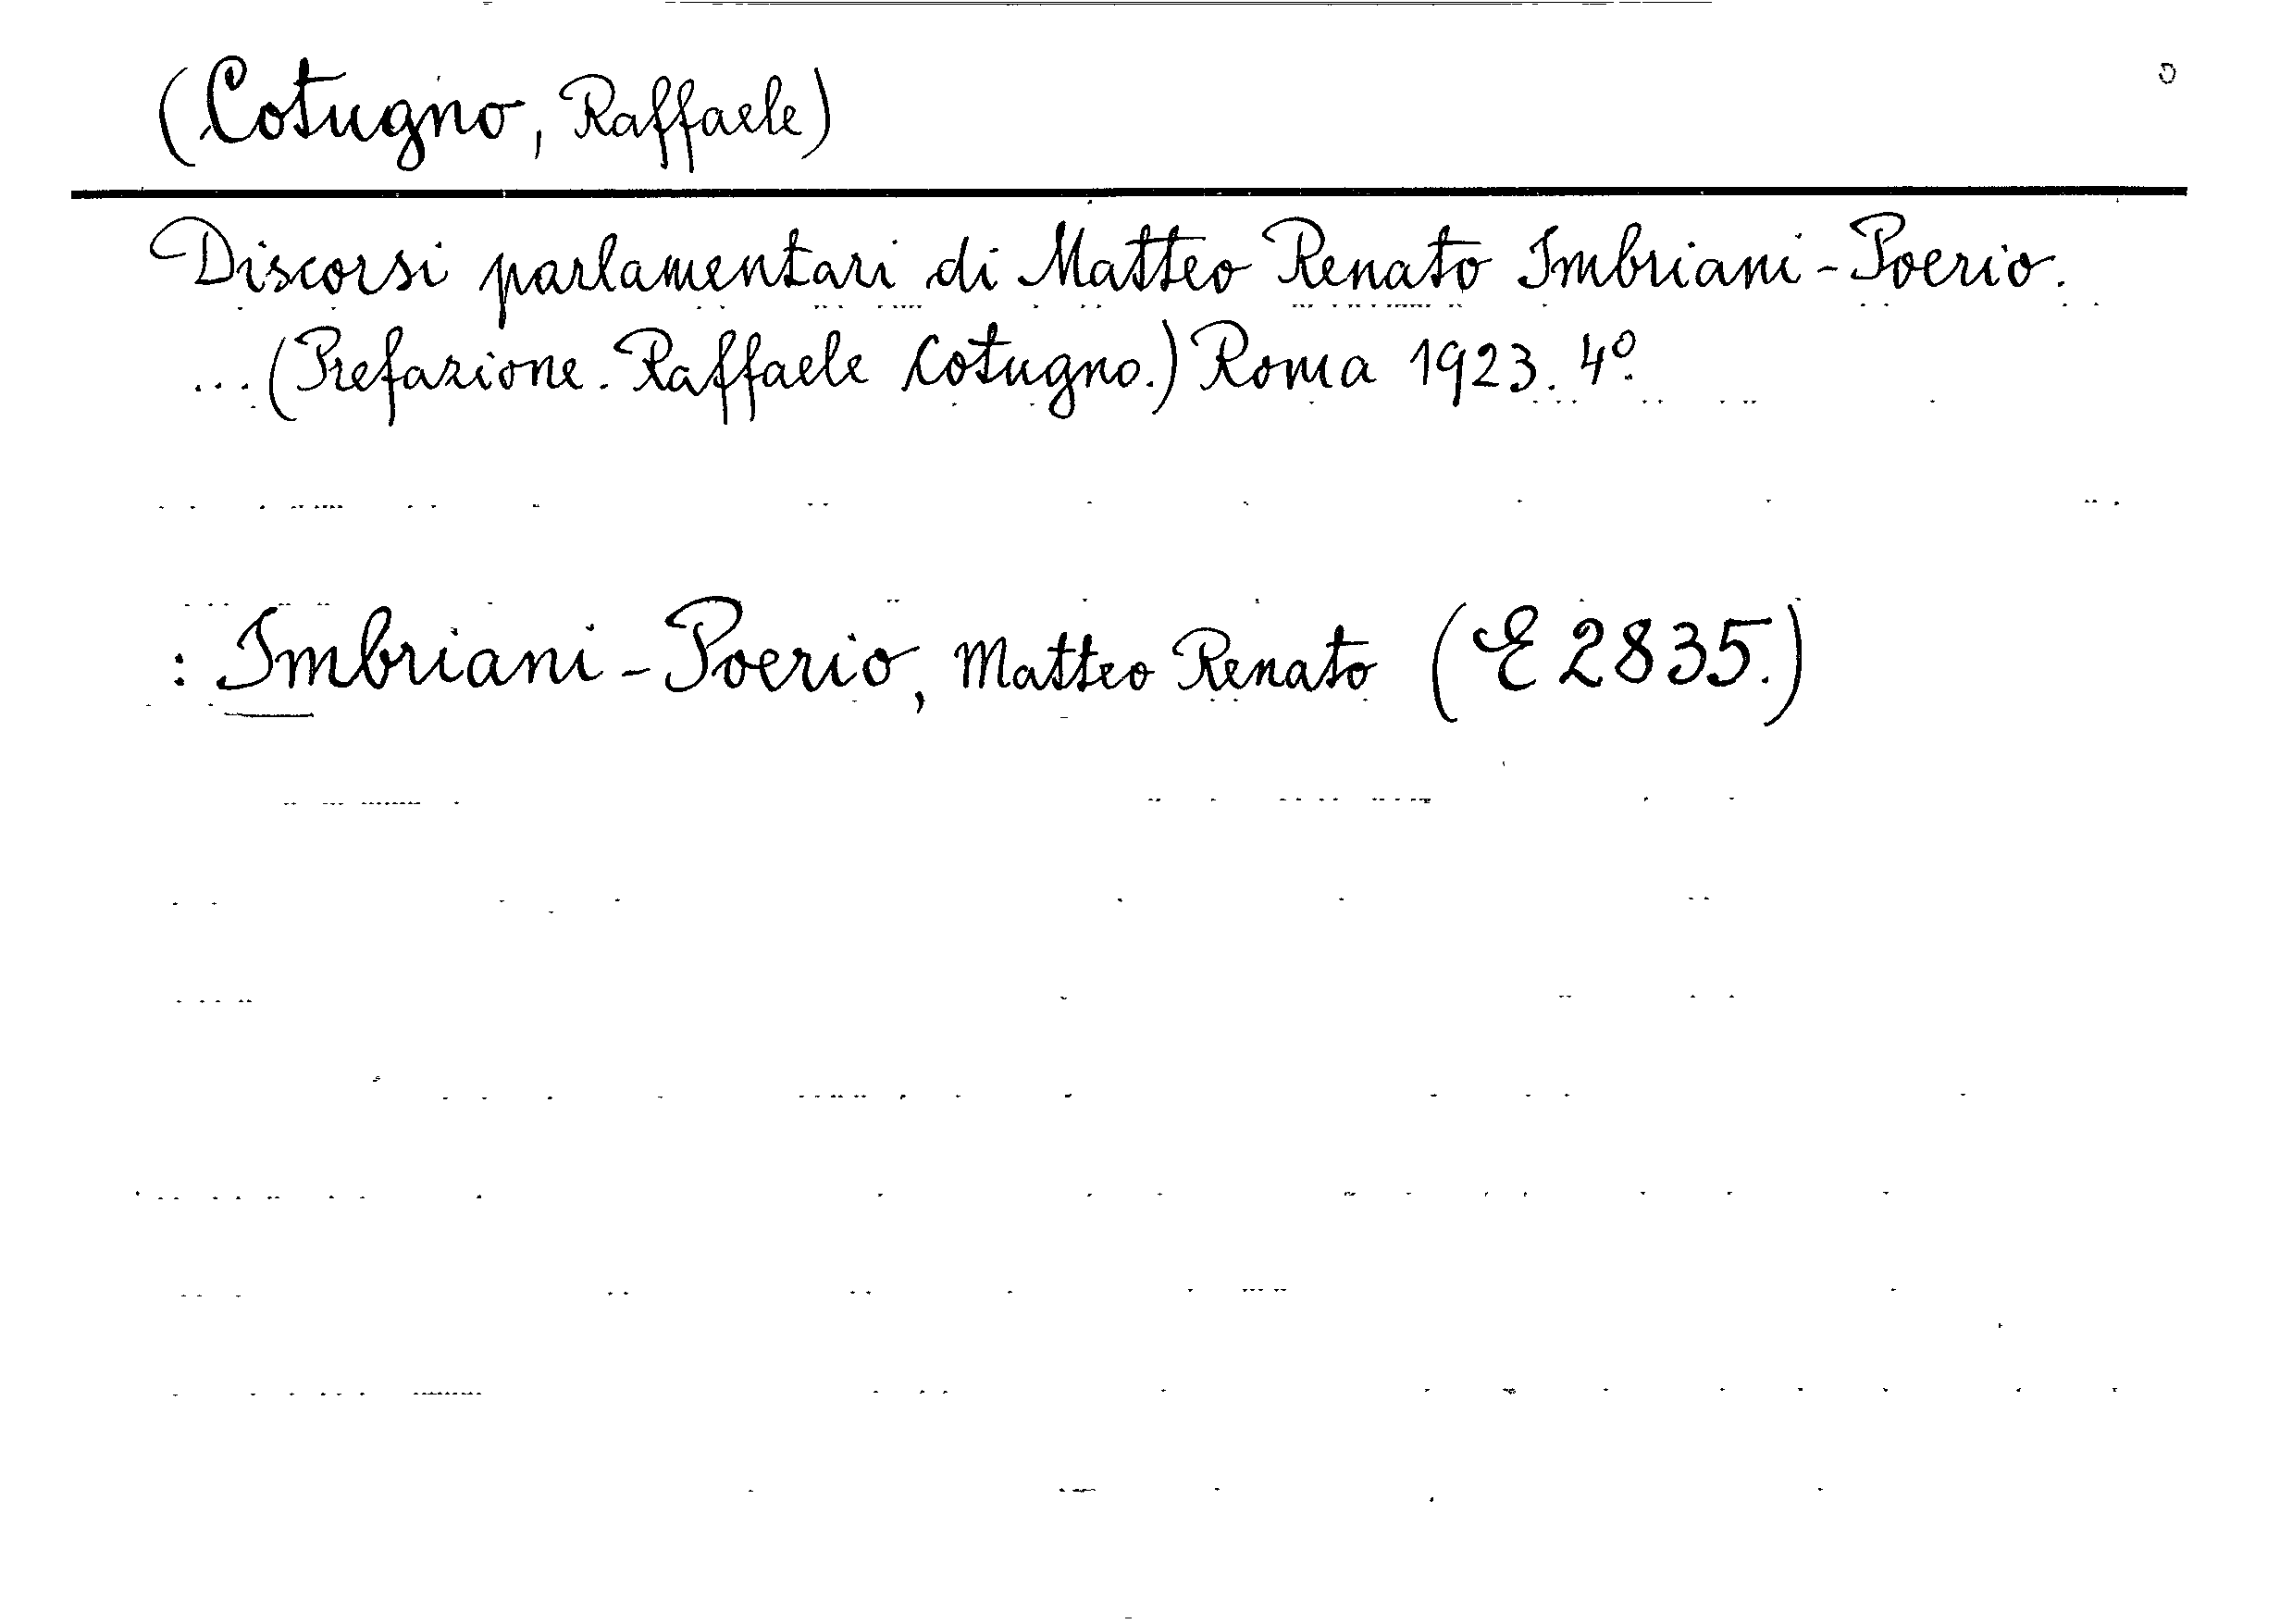 (Cotugno, Raffaele)
Discorsi parlamentari di Matteo Renato Imbriani-Poerio.
...(Prefazione. Raffaele Cotugno.) Roma 1923. 4º.
: Imbriani-Poerio, Matteo Renato (E 2835.)